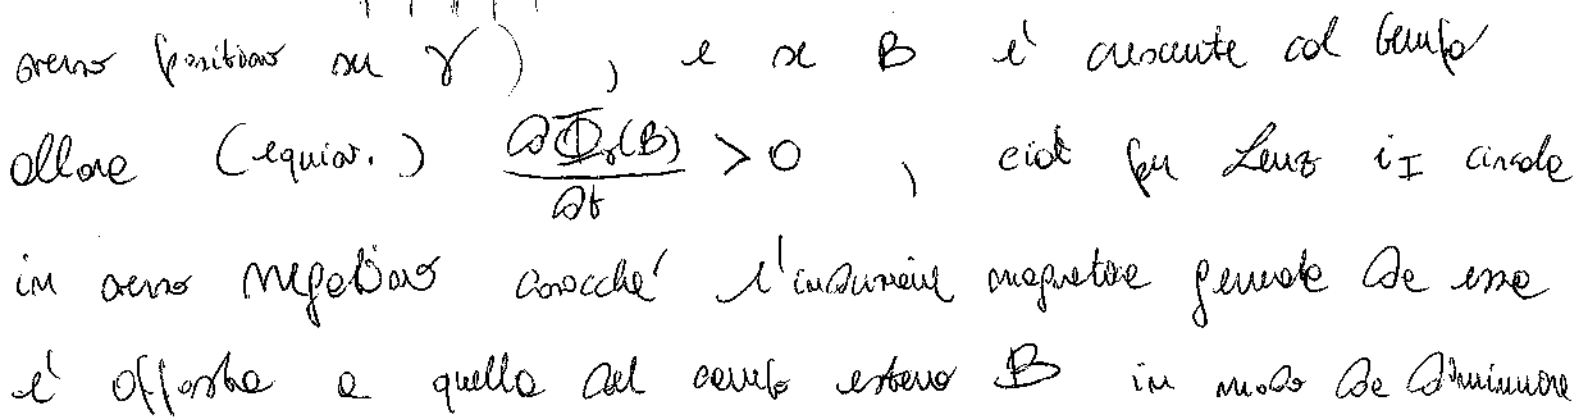 senso positivo su γ ) , e se B è crescente col tempo
allora (equiv.) dΦγ(B)/dt > 0 , cioè per Lenz i_I circola
in senso negativo cosicché l'induzione magnetica generata da essa
è opposta a quella del campo esterno B in modo da diminuire